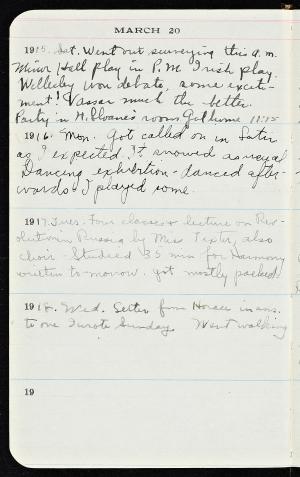 MARCH 20
1915. Sat. Went out surveying this a.m.
Minor Hall play in P.M. Irish play.
Wellesley won debate, some excite-
ment! Vassar much the better
Party in H. Sloane's room Got home 11:15
1916. Mon. Got called on in Satire
as I expected. It snowed as usual
Dancing exhibition - danced after-
wards & I played some.
1917. Tues. Four classes & lecture on Rev-
olution in Russia by Miss Textor, also
choir. Studied 35 min for Harmony
written to-morrow. Got mostly packed
1918. Wed. Letter from Horace in ans.
to one I wrote Sunday. Went walking
19